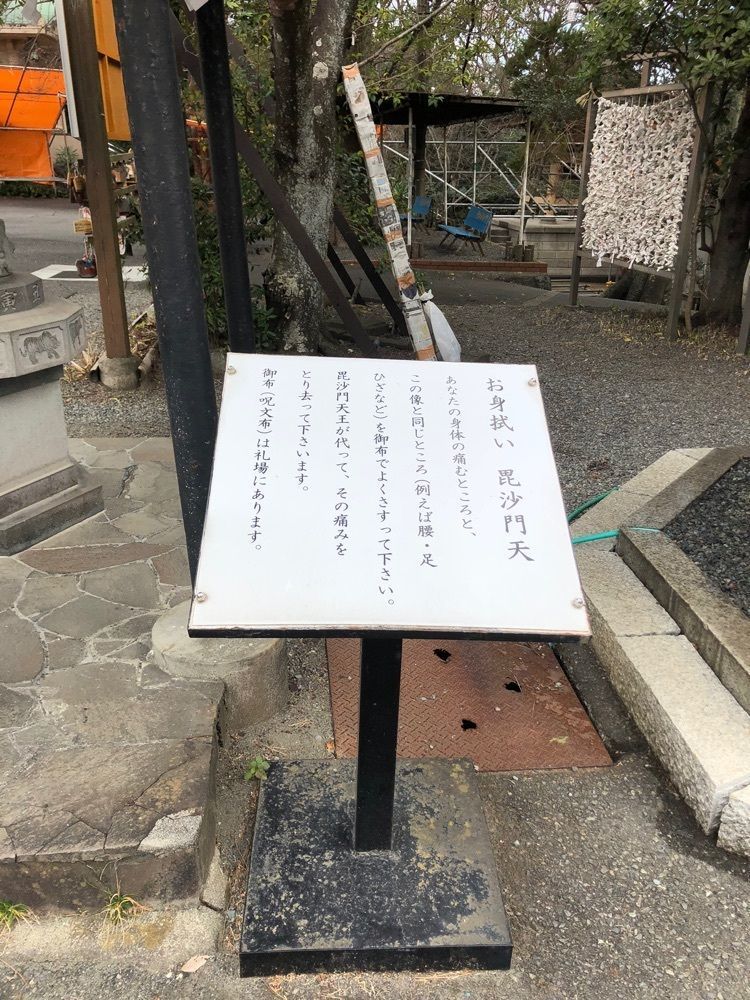 お身拭い　毘沙門天
あなたの身体の痛むところと、
この像と同じところ（例えば腰・足
ひざなど）を御布でよくさすって下さい。
毘沙門天王が代って、その痛みを
とり去って下さいます。
御布（呪文布）は礼場にあります。